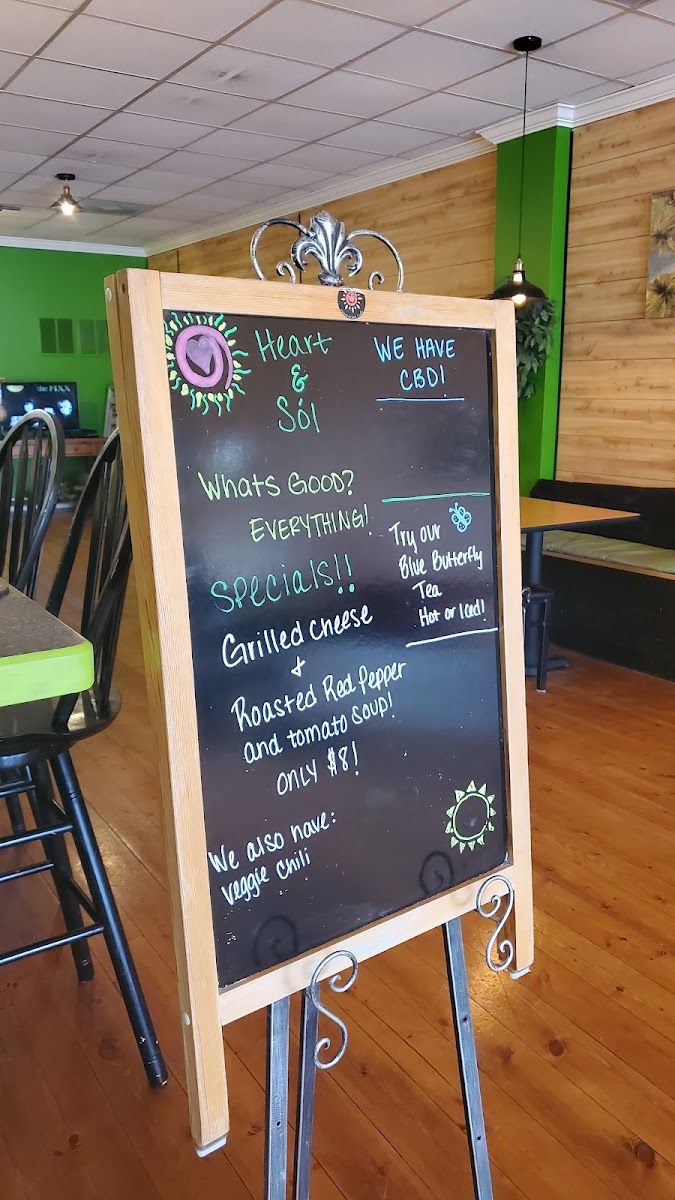 Heart
&
Sól
WE HAVE
CBD!
Whats GOOD?
EVERYTHING!
Specials!!
Grilled cheese
+
Roasted Red Pepper
and tomato soup!
ONLY $8!
We also have:
veggie chili
Try our
Blue Butterfly
Tea
Hot or Iced!
the FIXX